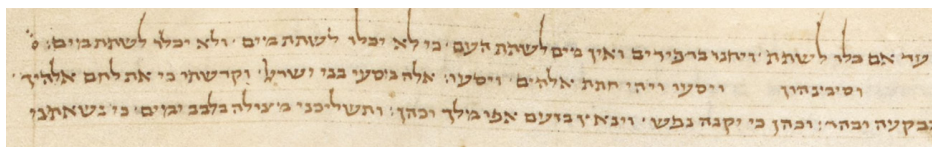 עד אם כלו לשתת · ויחנו ברפידים ואין מים לשתת העם · כי לא יכלו לשתת מים · ולא יכלו לשתת מים : ס
וסימניהון ויסעו ויהי חתת אלהים · ויסעו : אלה מסעי בני ישראל · וקדשתו כי את לחם אלהיך ·
בבקעה ובהר : וכהן כי יקנה נפש · וינאץ בזעם אפו מלך וכהן : ותשליכני מצולה בלבב ימים · כי נשאתני